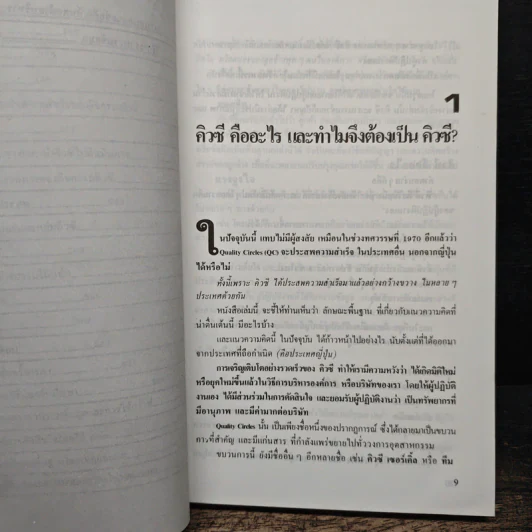 1
คิวซี คืออะไร และทำไมจึงต้องเป็น คิวซี?
ในปัจจุบันนี้ แทบไม่มีผู้สงสัย เหมือนในช่วงทศวรรษที่ 1970 อีกแล้วว่า
Quality Circles (QC) จะประสพความสำเร็จ ในประเทศอื่น นอกจากญี่ปุ่น
ได้หรือไม่
ทั้งนี้เพราะ คิวซี ได้ประสพความสำเร็จมาแล้วอย่างกว้างขวาง ในหลาย ๆ
ประเทศด้วยกัน
หนังสือเล่มนี้ จะชี้ให้ท่านเห็นว่า ลักษณะพื้นฐาน ที่เกี่ยวกับแนวความคิดที่
น่าตื่นเต้นนี้ มีอะไรบ้าง
และแนวความคิดนี้ ในปัจจุบัน ได้ก้าวหน้าไปอย่างไร นับตั้งแต่ที่ได้ออกมา
จากประเทศที่ถือกำเนิด (คือประเทศญี่ปุ่น)
การเจริญเติบโตอย่างรวดเร็วของ คิวซี ทำให้เรามีความหวังว่า ได้เกิดมิติใหม่
หรือยุคใหม่ขึ้นแล้วในวิธีการบริหารองค์การ หรือบริษัทของเรา โดยให้ผู้ปฏิบัติ
งานเอง ได้มีส่วนร่วมในการตัดสินใจ และยอมรับผู้ปฏิบัติงานว่า เป็นทรัพยากรที่
มีอานุภาพ และมีค่ามากต่อบริษัท
Quality Circles นั้น เป็นเพียงชื่อหนึ่งของปรากฏการณ์ ซึ่งได้กลายมาเป็นขบวน
การที่สำคัญ และมีแก่นสาร ที่กำลังแพร่ขยายไปทั่ววงการอุตสาหกรรม
ขบวนการนี้ ยังมีชื่ออื่น ๆ อีกหลายชื่อ เช่น คิวซี เซอร์เคิ้ล หรือ ทีม
9